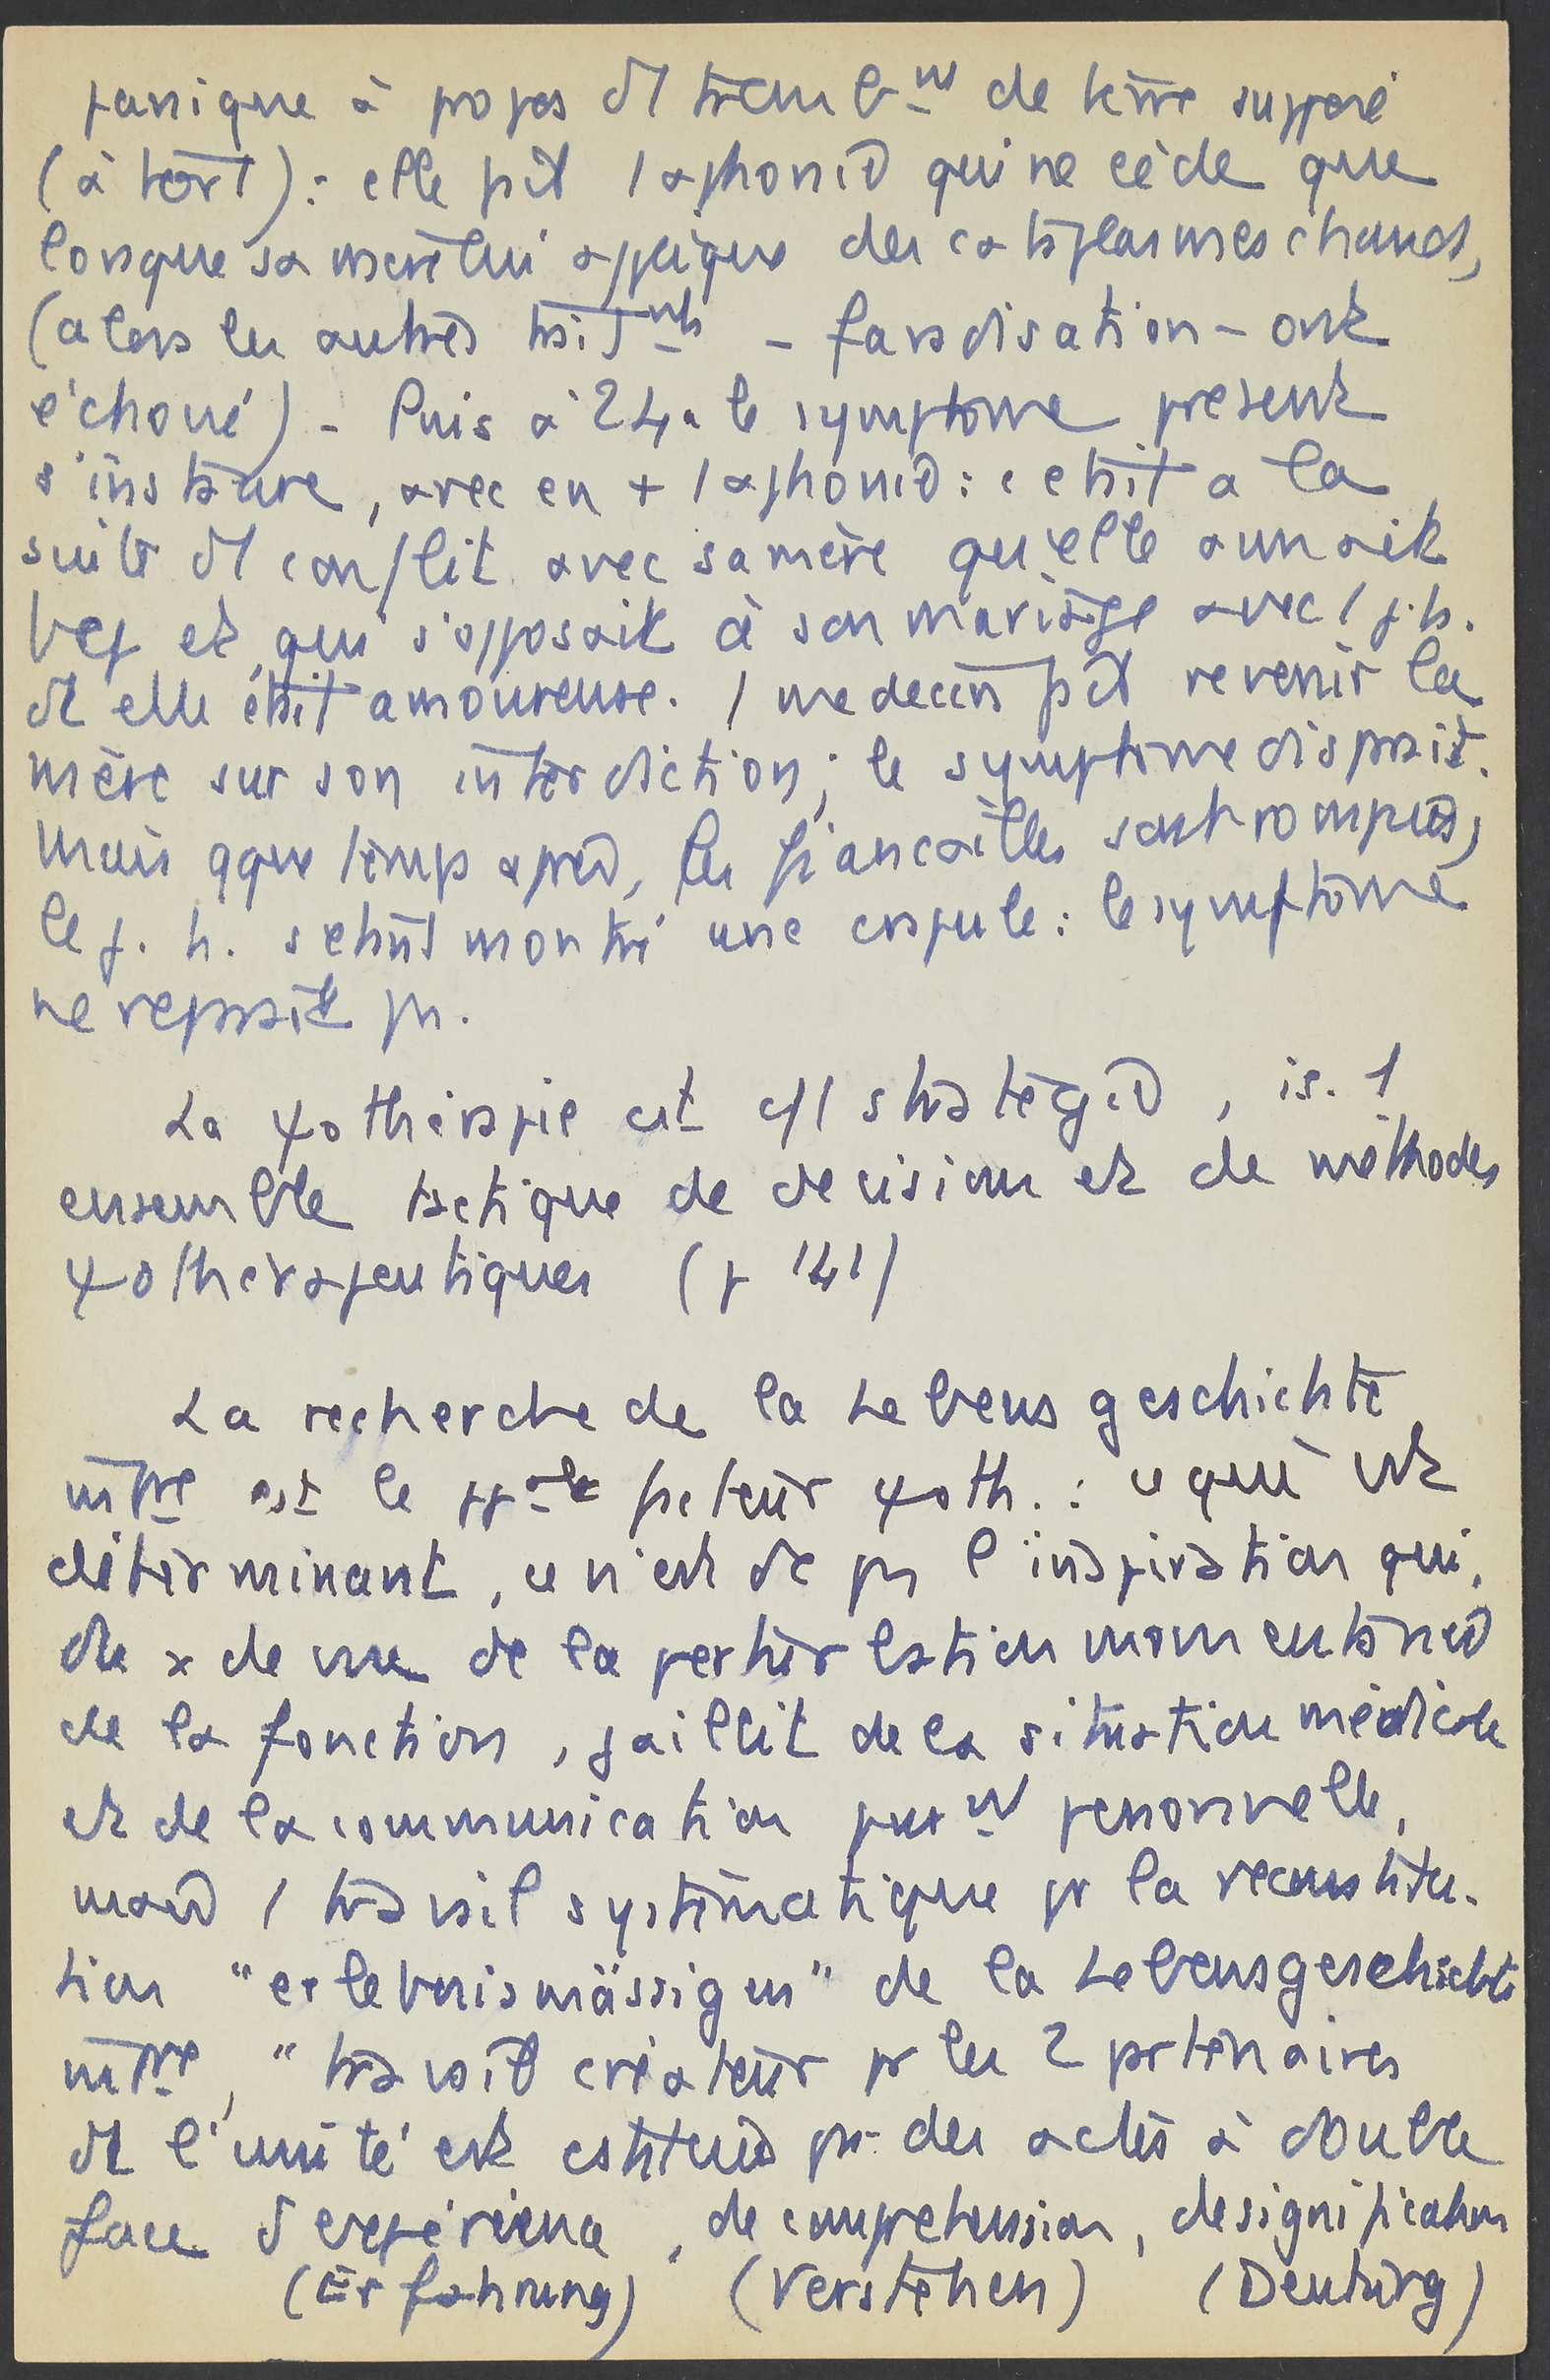 panique à propos d'1 tremblmt de terre supposé
(à tort) : elle fait 1 aphonie qui ne cède que
lorsque sa mère lui applique des cataplasmes chauds,
(alors les autres traitmts – faradisation – ont
échoué) – Puis à 24 a le symptome présent
s'instaure, avec en + 1 aphonie : c'était à la
suite d'1 conflit avec sa mère qu'elle aimait
bcp et qui s'opposait à son mariage avec 1 j. h.
dt elle était amoureuse. 1 médecin fait revenir la
mère sur son interdiction ; le symptome disparait.
Mais qque temps après, les fiançailles sont rompues,
le j. h. s'étant montré une crapule : le symptome
ne reparait pas.
La ψothérapie est 1 stratégie, i.e. 1
ensemble tactique de décision et de méthodes
ψothérapeutiques (p 141)
La recherche de la Lebensgeschichte
intre est le ppale facteur ψoth. : ce qui est
déterminant, ce n'est dc pas l'inspiration qui,
du x de vue de la perturbation momentanée
de la fonction, jaillit de la situation médicale
et de la communication purmt personnelle,
mais 1 travail systématique pr la reconstitu-
tion "erlebnismässigen" de la Lebensgeschichte
intre, "travail créateur pr les 2 partenaires
dt l'unité est cstituée par des actes à double
face d'expérience, de compréhension, de signification
(Erfahrung) (Verstehen) (Deutung)